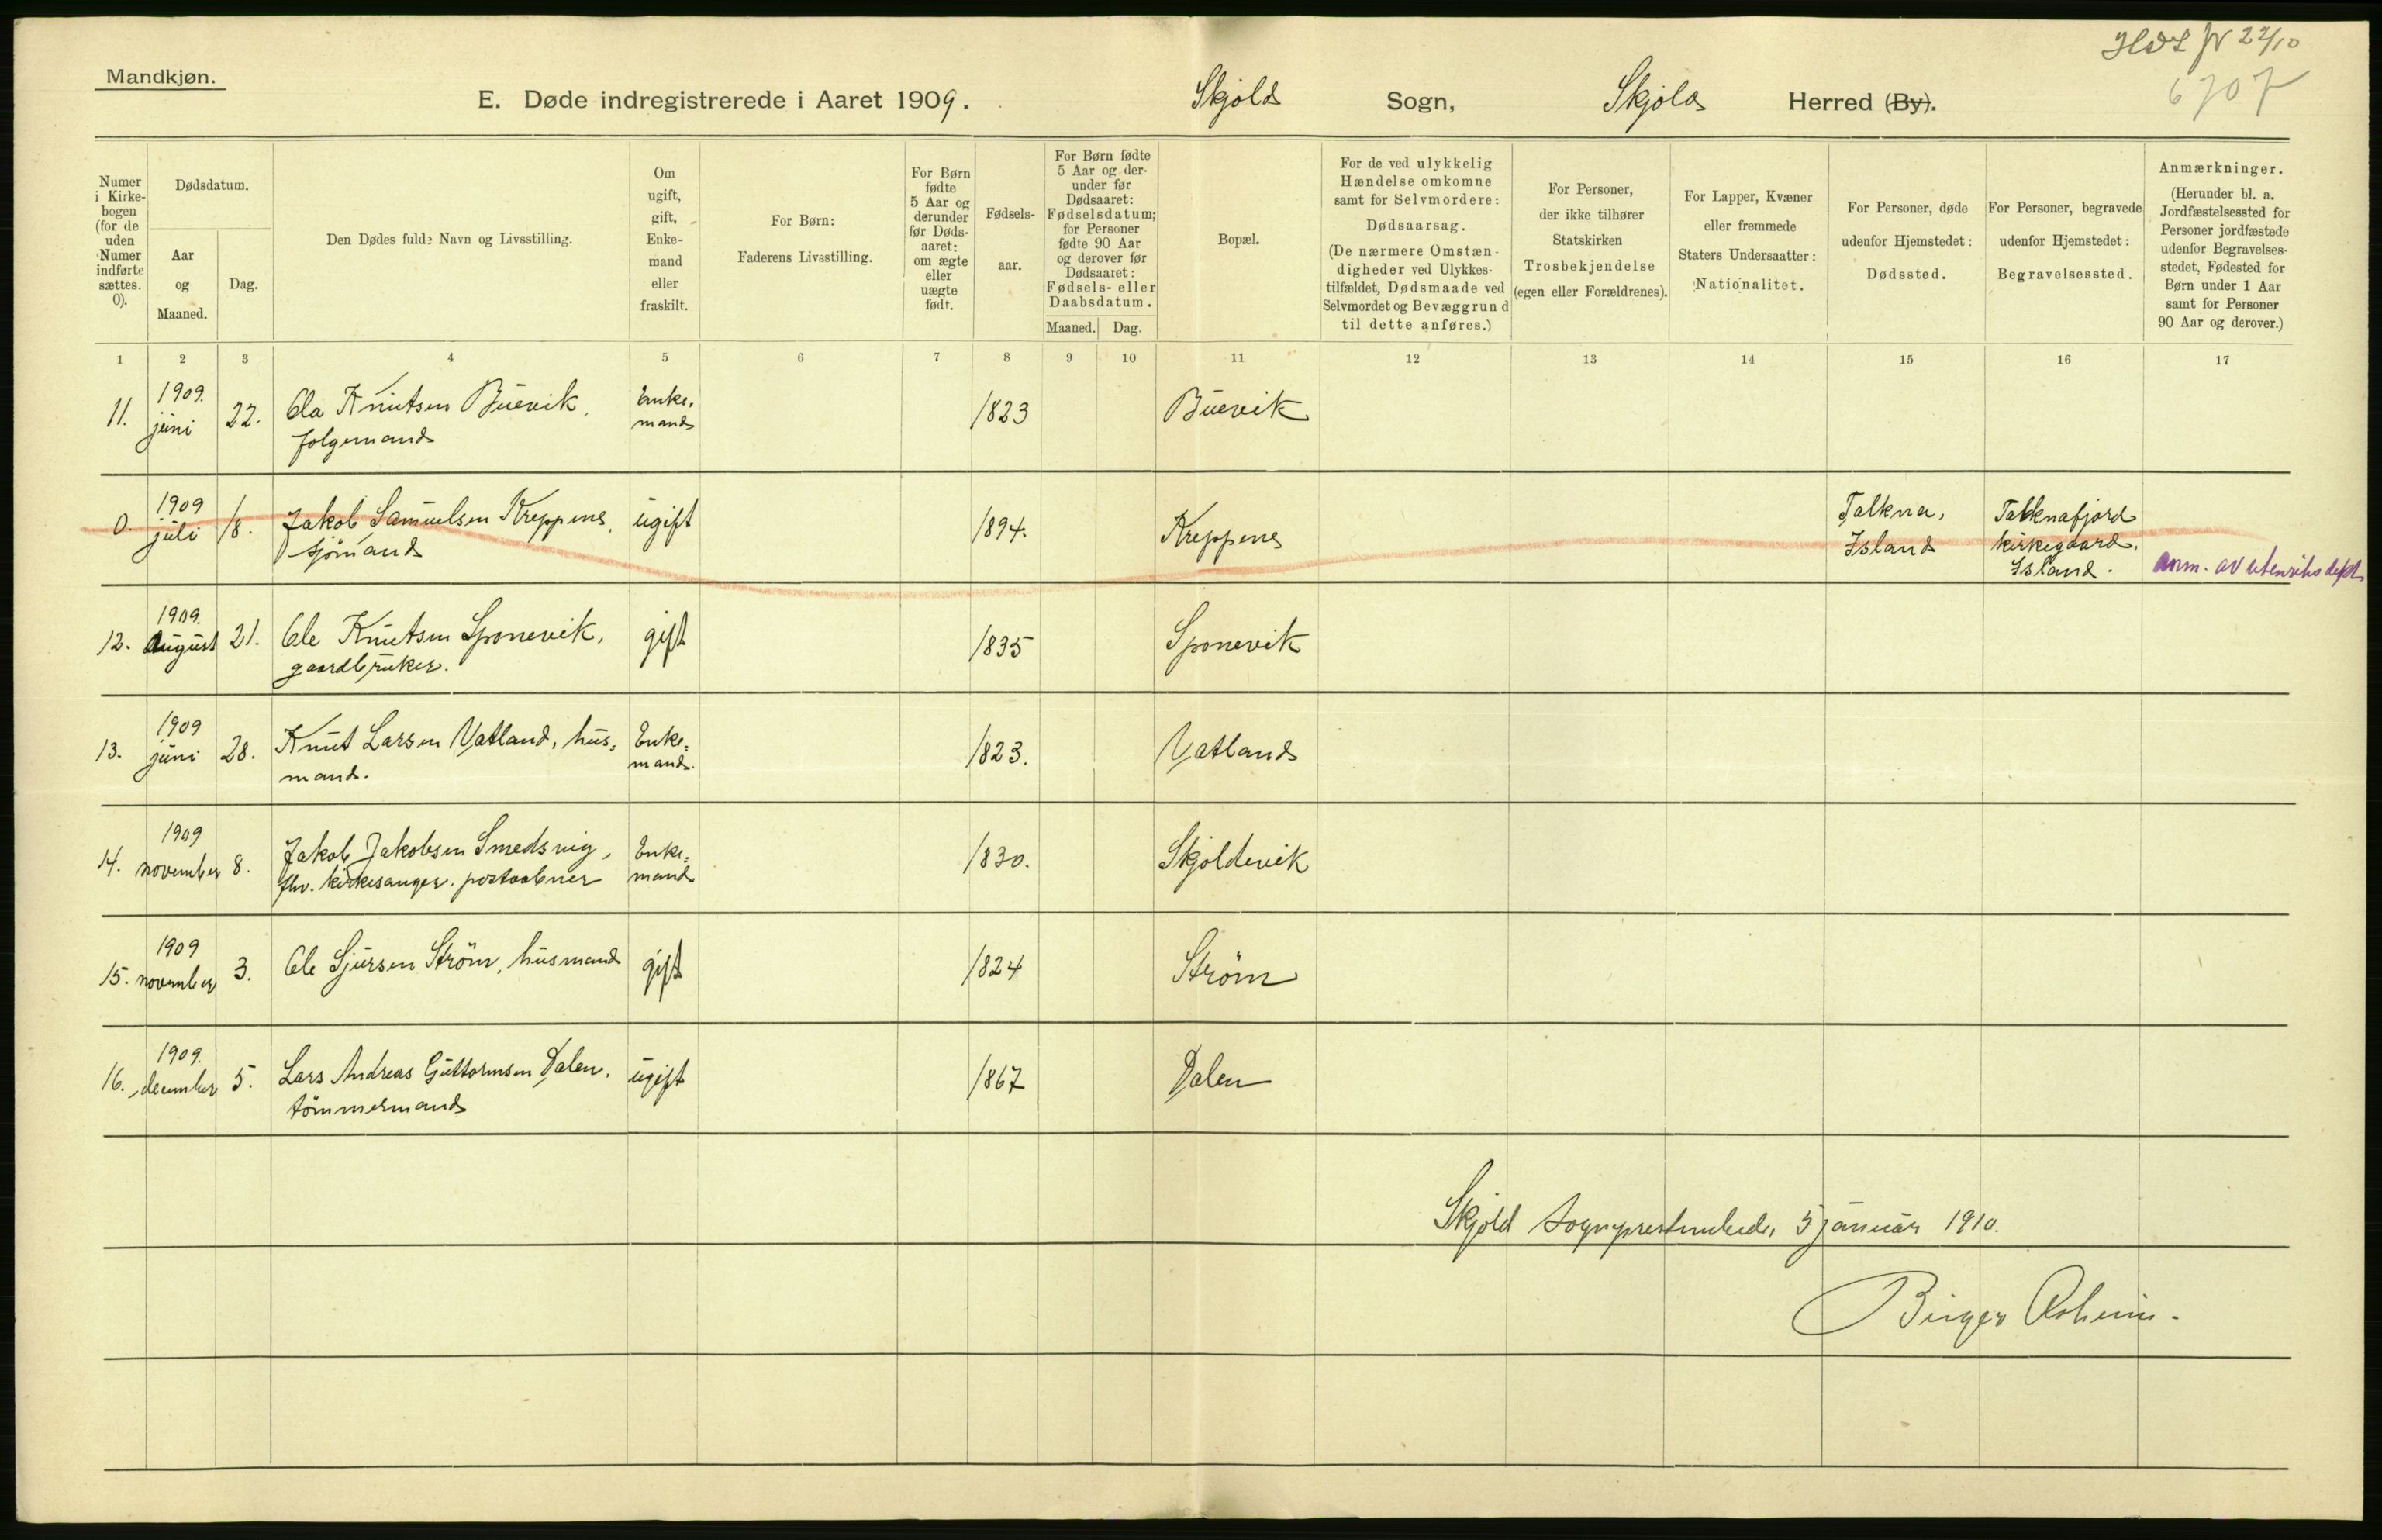 Mandkjøn.
E. Døde indregistrerede i Aaret 1909. Skjold Sogn, Skjold Herred (By).
22/10
6707
Numer i Kirkebogen (for de uden Numer indførte sættes. 0).
Dødsdatum.
Aar og Maaned.
Dag.
Den Dødes fulde Navn og Livsstilling.
Om ugift, gift, Enkemand eller fraskilt.
For Børn:
Faderens Livsstilling.
For Børn fødte 5 Aar og derunder før Dødsaaret: om ægte eller uægte født.
Fødselsaar.
For Børn fødte 5 Aar og derunder før Dødsaaret: Fødselsdatum; for Personer fødte 90 Aar og derover før Dødsaaret: Fødsels- eller Daabsdatum.
Maaned. Dag.
Bopæl.
For de ved ulykkelig Hændelse omkomne samt for Selvmordere: Dødsaarsag. (De nærmere Omstændigheder ved Ulykkestilfældet, Dødsmaade ved Selvmordet og Bevæggrund til dette anføres.)
For Personer, der ikke tilhører Statskirken Trosbekjendelse (egen eller Forældrenes).
For Lapper, Kvæner eller fremmede Staters Undersaatter: Nationalitet.
For Personer, døde udenfor Hjemstedet: Dødssted.
For Personer, begravede udenfor Hjemstedet: Begravelsessted.
Anmærkninger. (Herunder bl. a. Jordfæstelsessted for Personer jordfæstede udenfor Begravelsesstedet, Fødested for Børn under 1 Aar samt for Personer 90 Aar og derover.)
1 2 3 4 5 6 7 8 9 10 11 12 13 14 15 16 17
11. 1909. juni 22. Ola Knutsen Buevik, folgemand Enkemand 1823 Buevik
0. 1909 juli 18. Jakob Samuelsen Kreppene, sjömand ugift 1894. Kreppene Talkna, Island Talknafjord kirkegaard. Island. Anm. av utenriksdept
12. 1909. august 21. Ole Knutsen Sponevik, gaardbruker. gift 1835 Sponevik
13. 1909 juni 28. Knut Larsen Vatland, husmand. Enkemand. 1823. Vatland
14. 1909 november 8. Jakob Jakobsen Smedsvig, fhv. kirkesanger. postaabner Enkemand 1830. Skjoldevik
15. 1909 november 3. Ole Sjursen Ström, husmand gift 1824 Ström
16. 1909. december 5. Lars Andreas Guttormsen Dalen. tömmermand ugift 1867 Dalen
Skjold sogneprestembede, 5 januar 1910.
Birger